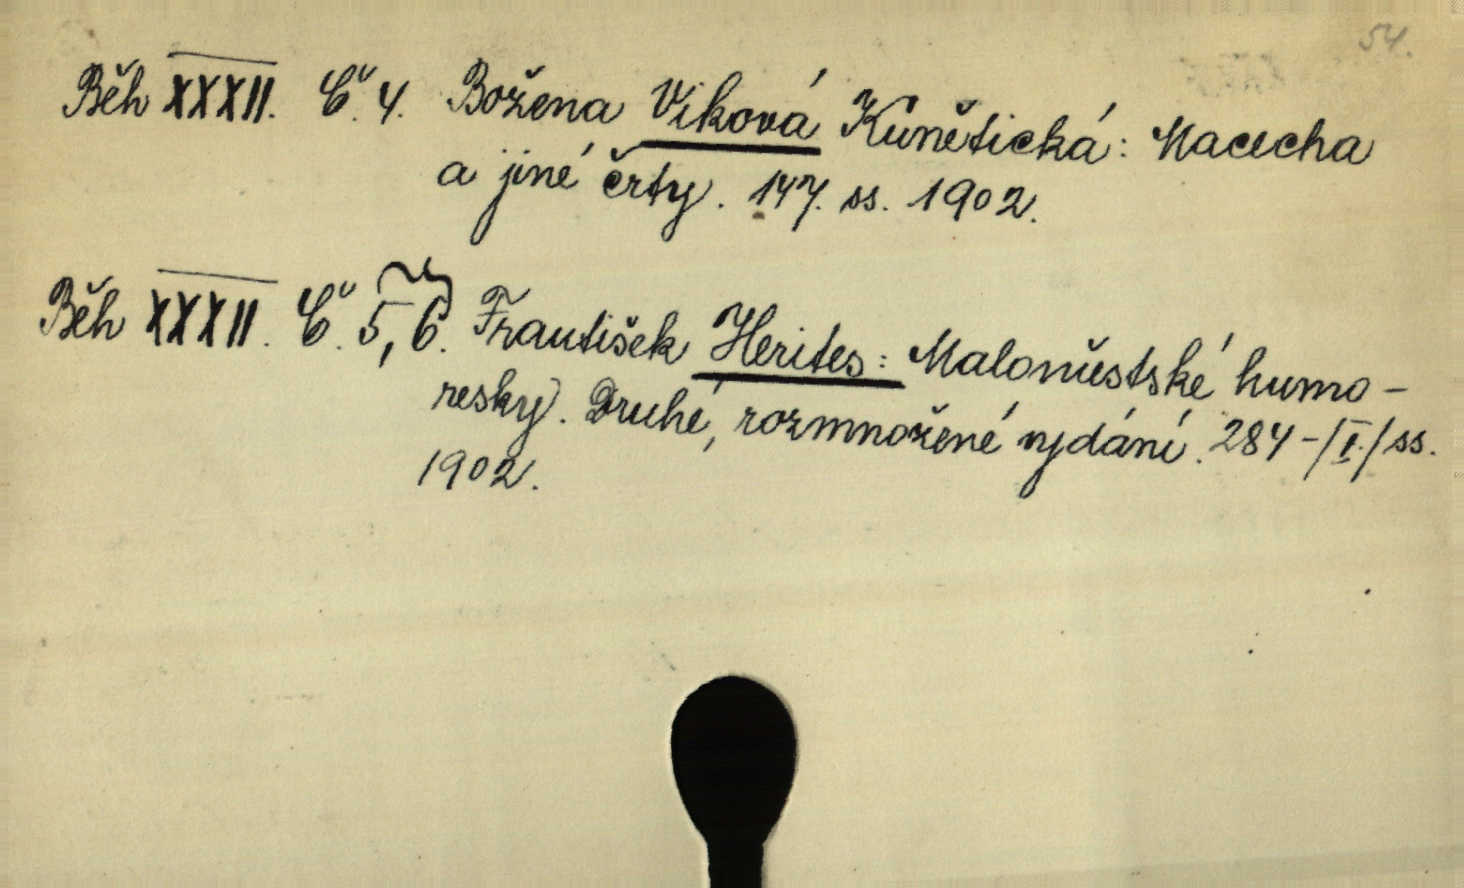 54.
Běh XXXII. Č. 4. Božena Viková Kunětická: Macecha
a jiné črty. 147. ss. 1902.
Běh XXXII. Č. 5, 6. František Herites: Maloměstské humo-
resky. Druhé, rozmnožené vydání. 284-/I./ss.
1902.